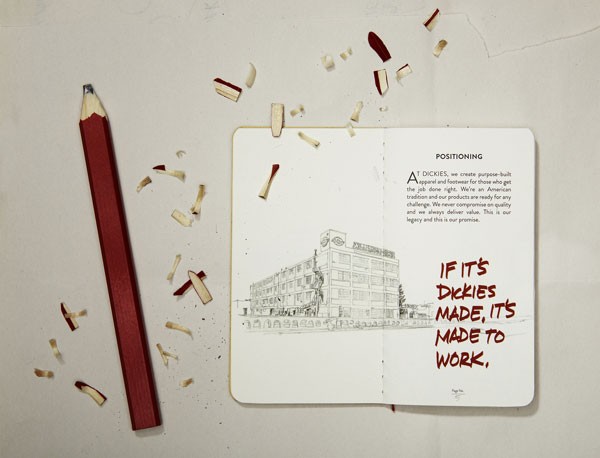 POSITIONING
AT DICKIES, we create purpose-built
apparel and footwear for those who get
the job done right. We're an American
tradition and our products are ready for any
challenge. We never compromise on quality
and we always deliver value. This is our
legacy and this is our promise.
IF IT'S
DICKIES
MADE, IT'S
MADE TO
WORK.